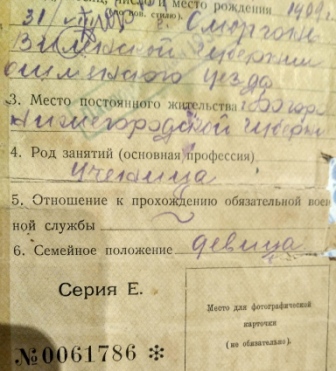 место рождения 1909
31 г. Сморгонь
Виленской губернии
ошмянского уезда
3. Место постоянного жительства: Богор
Нижегородской губерн
4. Род занятий (основная профессия)
ученица
5. Отношение к прохождению обязательной воен
ной службы
6. Семейное положение девица
Серия Е.
Место для фотографической
карточки
(не обязательно).
№0061786 ✻